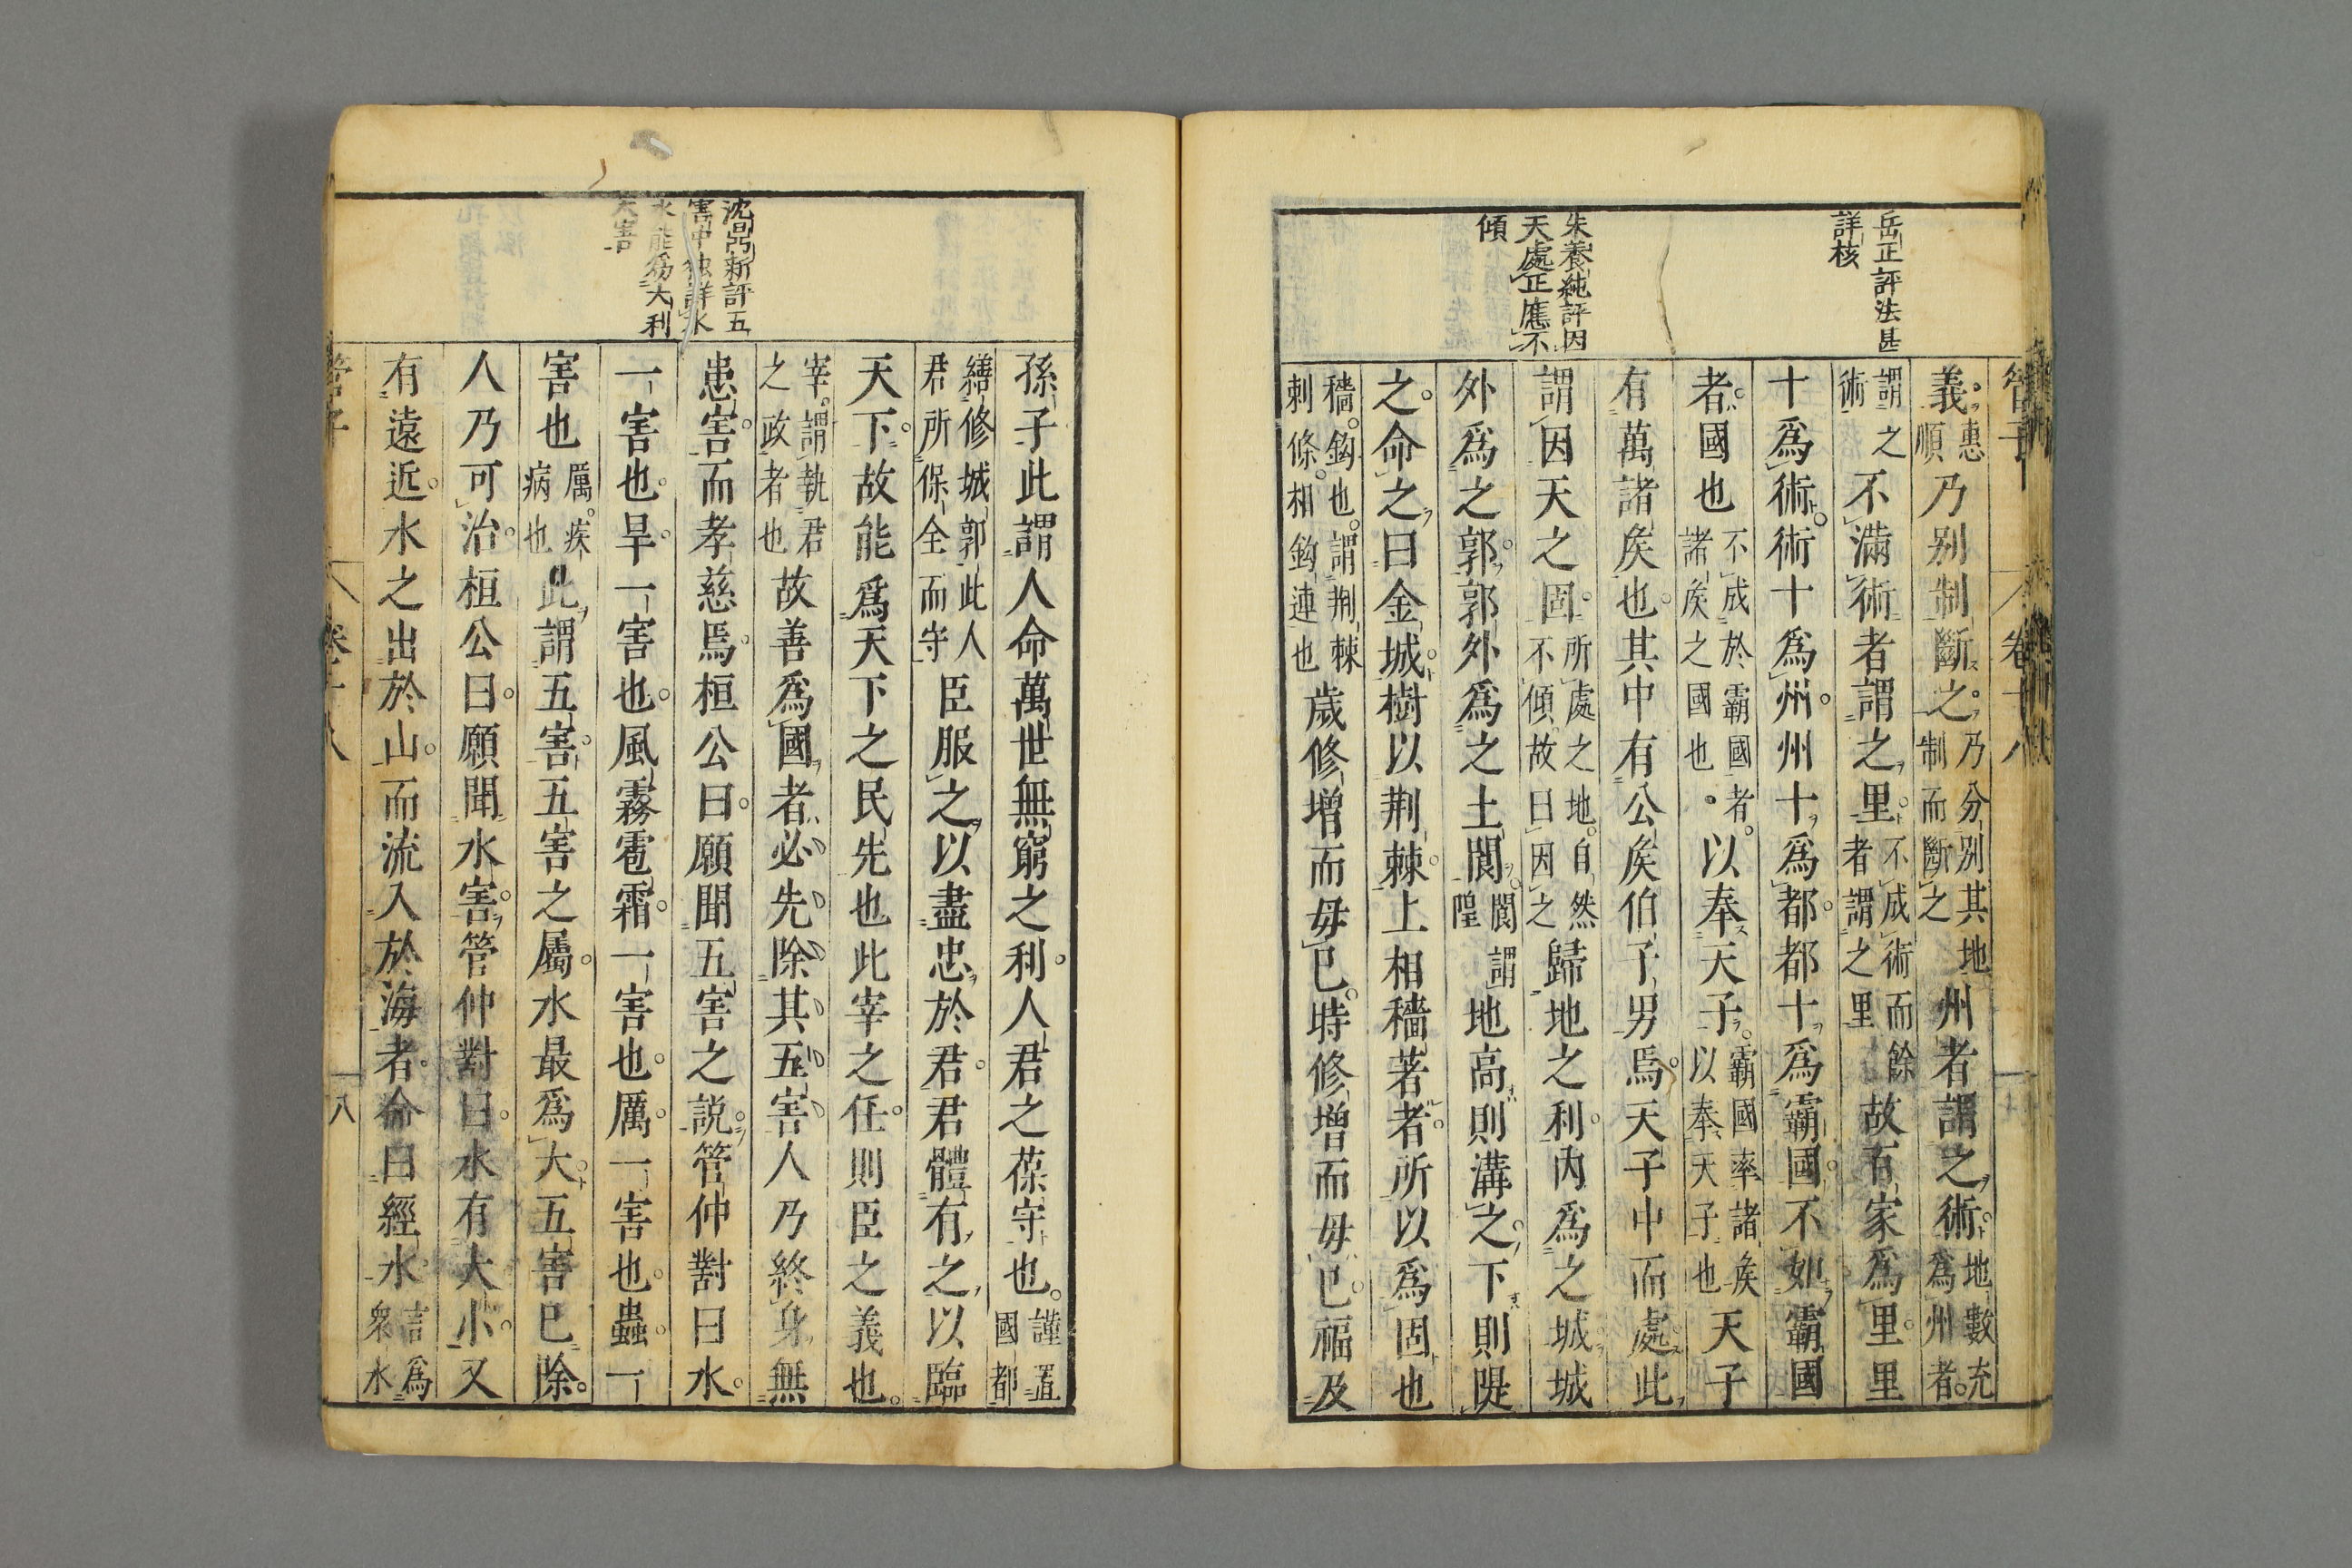 管子
卷十八
岳正評法甚
詳核
朱養純評因
天處正應不
傾
義惠順乃别制斷之乃分别其地制而斷之州者謂之術地數充爲州者
謂之術不滿術者謂之里不成術而餘者謂之里故百家爲里里
十爲術術十爲州州十爲都都十爲霸國不如霸國
者國也不成於霸國者諸矦之國也以奉天子霸國率諸矦以奉天子也天子
有萬諸矦也其中有公矦伯子男焉天子中而處此
謂因天之固所處之地自然不傾故曰因之歸地之利内爲之城城
外爲之郭郭外爲之土閬閬謂隍地高則溝之下則隄
之命之曰金城樹以荆棘上相穡著者所以爲固也
穡鈎也謂荆棘刺條相鈎連也歲修增而毋已時修增而毋已福及
沈鼎新評五
害中独詳水
水能爲大利
大害
孫子此謂人命萬世無窮之利人君之葆守也謹置國都
繕修城郭此人君所保全而守臣服之以盡忠於君君體有之以臨
天下故能爲天下之民先也此宰之任則臣之義也
宰謂執君之政者也故善爲國者必先除其五害人乃終身無
患害而孝慈焉桓公曰願聞五害之説管仲對曰水
一害也旱一害也風霧雹霜一害也厲一害也蟲一
害也厲疾病也此謂五害五害之屬水最爲大五害已除
人乃可治桓公曰願聞水害管仲對曰水有大小又
有遠近水之出於山而流入於海者命曰經水言爲衆水
管子
卷十八
八